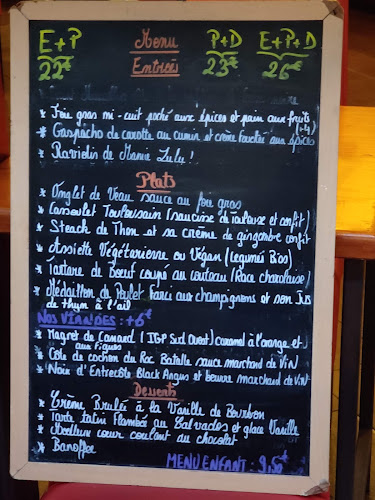 E+P Menu P+D E+P+D
22€ Entrées 23€ 26€
* Foie gras mi-cuit poché aux épices et pain aux fruits
* Gaspacho de carotte au cumin et crème fouettée aux épices
* Raviolis de Mamie Lulu !
Plats
* Onglet de Veau sauce au foie gras
* Cassoulet Toulousain (saucisse de Toulouse et confit)
* Steack de Thon et sa crème de gingembre confit
* Assiette Végétarienne ou Végan (Légumes Bios)
* Tartare de Boeuf coupé au couteau (Race charolaise)
* Médaillon de Poulet farci aux champignons et son Jus
de thym à l'ail
NOS VIANDES : +6€
* Magret de Canard (IGP Sud Ouest) caramel à l'orange et
aux Figues
* Côte de cochon du Roc Bataille sauce marchand de ViN
* Noix d'Entrecôte Black Angus et beurre marchand de ViN
Desserts
* Crème Brulée à la Vanille de Bourbon
* Tarte tatin Flambée au Calvados et glace Vanille
* Moelleux cœur coulant au chocolat
* Banoffee
MENU ENFANT : 9,50€